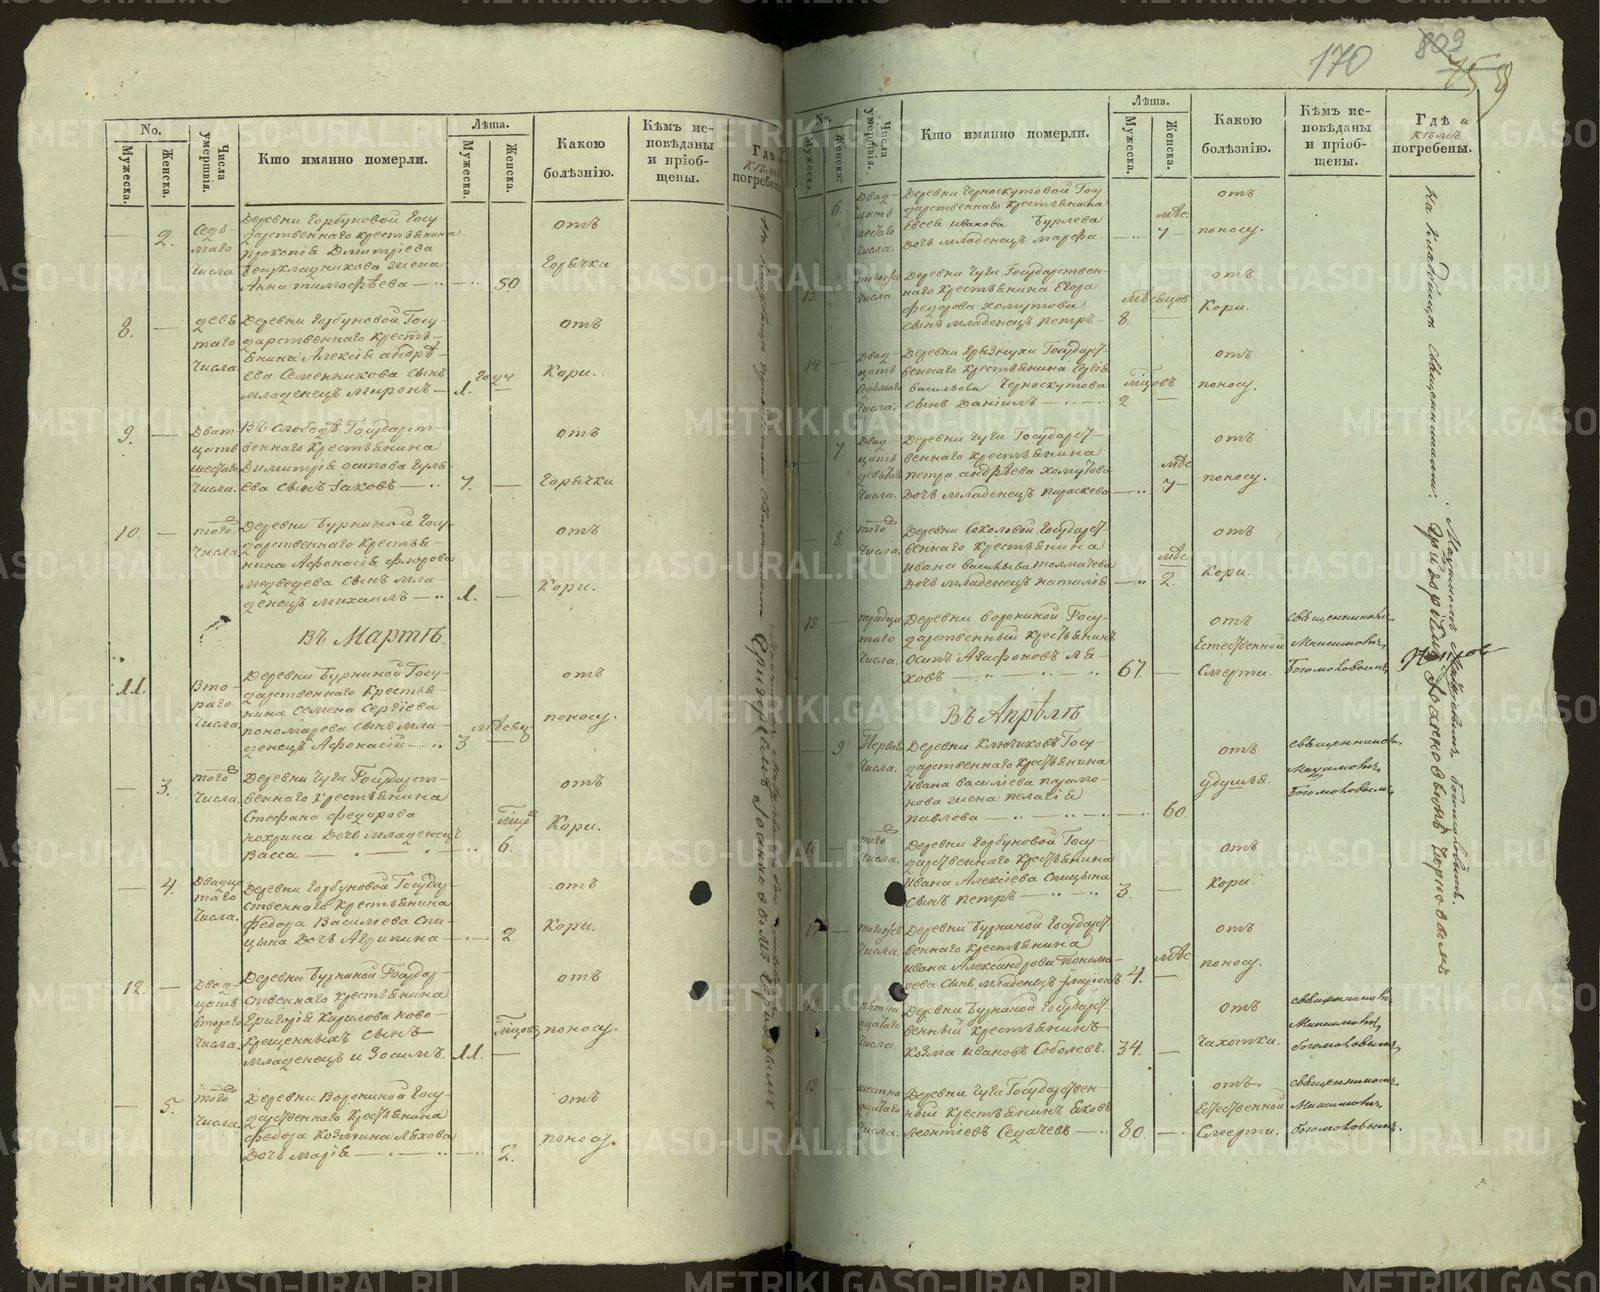 No.
Мужеска.
Женска.
Числа умершвія.
Кто имянно померли.
Лѣта.
Мужеска.
Женска.
Какою
болѣзнію.
Кѣмъ ис-
повѣданы
и пріоб-
щены.
Гдѣ и
погребены.
2.
Седь-
маго
числа
Деревни Горбуновой Госу
дарственнаго крестьянина
Прокопія Дмитріева
жена
Анна Тимофѣева
50
отъ
Горячки
8.
девя
таго
числа
Деревни Горбуновой Госу
дарственнаго кресть-
янина Алексія Андрѣ-
ева Семенникова сынъ
младенецъ Миронъ
1. года
отъ
Кори.
9.
Дват-
цать
шестаго
числа.
Въ слободѣ Государст-
веннаго крестьянина
Димитрія Осипова Гуль-
ева сынъ Іаковъ
7.
отъ
Горячки
10.
того
числа
Деревни Бурниной Госу-
дарственнаго крестья-
нина Афонасія Флорова
Медведева сынъ мла
денецъ Михаилъ
1.
отъ
Кори.
Въ Мартѣ
11.
Вто-
раго
числа.
Деревни Бурниной Госу-
дарственнаго крестья-
нина Семена Сергіева
Пономарева сынъ мла-
денецъ Афонасій
3
отъ
поносу.
3.
того
числа.
Деревни Чуги Государст-
веннаго крестьянина
Стефана Федорова
Кокрина дочь младенецъ
Васса
6.
отъ
Кори.
4.
Двадца
таго
числа.
Деревни Горбуновой Государ-
ственнаго крестьянина
Федора Василіева Спи-
цына дочь Агрипина
2.
отъ
Кори.
12.
Двад-
цать
втораго
числа.
Деревни Бурниной Государ-
ственнаго крестьянина
Григорія Кирилова Ново-
крещенныхъ сынъ
младенецъ Изосимъ.
11.
отъ
поносу.
5.
того
числа.
Деревни Ворониной Госу-
дарственнаго крестьянина
Федора Козмина Ляхова
дочь Марія
2.
отъ
поносу.
170
803
159
No.
Мужеска.
Женска.
Числа умершвія.
Кто имянно померли.
Лѣта.
Мужеска.
Женска.
Какою
болѣзнію.
Кѣмъ ис-
повѣданы
и пріоб-
щены.
Гдѣ и
кѣмъ
погребены.
6.
Двад-
цать
шестаго
числа.
Деревни Черноскутовой Госу
дарственнаго крестьянина
Евсея Иванова Бурлева
дочь младенецъ Марфа
мѣс:
7
отъ
поносу.
13.
тогожъ
числа
Деревни Чуги Государствен-
наго крестьянина Егора
Федорова Хомутова
сынъ младенецъ Петръ
мѣсяцов
8
отъ
Кори.
14
Двад-
цать
седьмаго
числа.
Деревни Грязнухи Государст-
веннаго крестьянина Сергія
Василіева Черноскутова
сынъ Даніилъ
2
отъ
поносу.
7.
Двад
цать
девятаго
числа.
Деревни Чуги Государст-
веннаго крестьянина
Петра Андрѣева Хомутова
дочь младенецъ Параскева
мѣс
7
отъ
поносу.
8.
того
числа.
Деревни Соколовой Государст-
веннаго крестьянина
Ивана Васильева Толмачева
дочь младенецъ Наталія
мѣс
2.
отъ
Кори.
15.
тридца
таго
числа.
Деревни Ворониной Госу-
дарственный крестьянинъ
Осипъ Агафоновъ Ля-
ховъ
67.
отъ
Естественной
Смерти.
священникомъ
Максимовичъ
Богомоловымъ
Въ Апрѣлѣ
9
Перваго
числа.
Деревни Ключиковъ Госу-
дарственнаго крестьянина
Ивана Василіева
жена Пелагія
Павлова
60.
отъ
удушья.
священникомъ
Богомоловымъ
16
того
числа.
Деревни Горбуновой Госу-
дарственнаго крестьянина
Ивана Алексіева Спицына
сынъ Петръ
3.
отъ
Кори.
17.
тогожъ
числа.
Деревни Бурниной Государст-
веннаго крестьянина
Ивана Александрова Понома-
рева сынъ младенецъ
мѣс
4.
отъ
поносу.
пятна
дцатаго
числа.
Деревни Бурниной Государст-
венный крестьянинъ
Козма Ивановъ Соболевъ.
34.
отъ
Чахотки.
священникомъ
Богомоловымъ
19.
шестна
дцатаго
числа.
Деревни Чуги Государствен-
ный крестьянинъ Яковъ
Леонтіевъ Седачевъ
80.
отъ
Естественной
Смерти.
священникомъ
Богомоловымъ.
На кладбищѣ священниками: Максимомъ Богомоловымъ.
Григоріемъ Іоанновымъ Черновымъ
METRIKI.GASO-URAL.RU